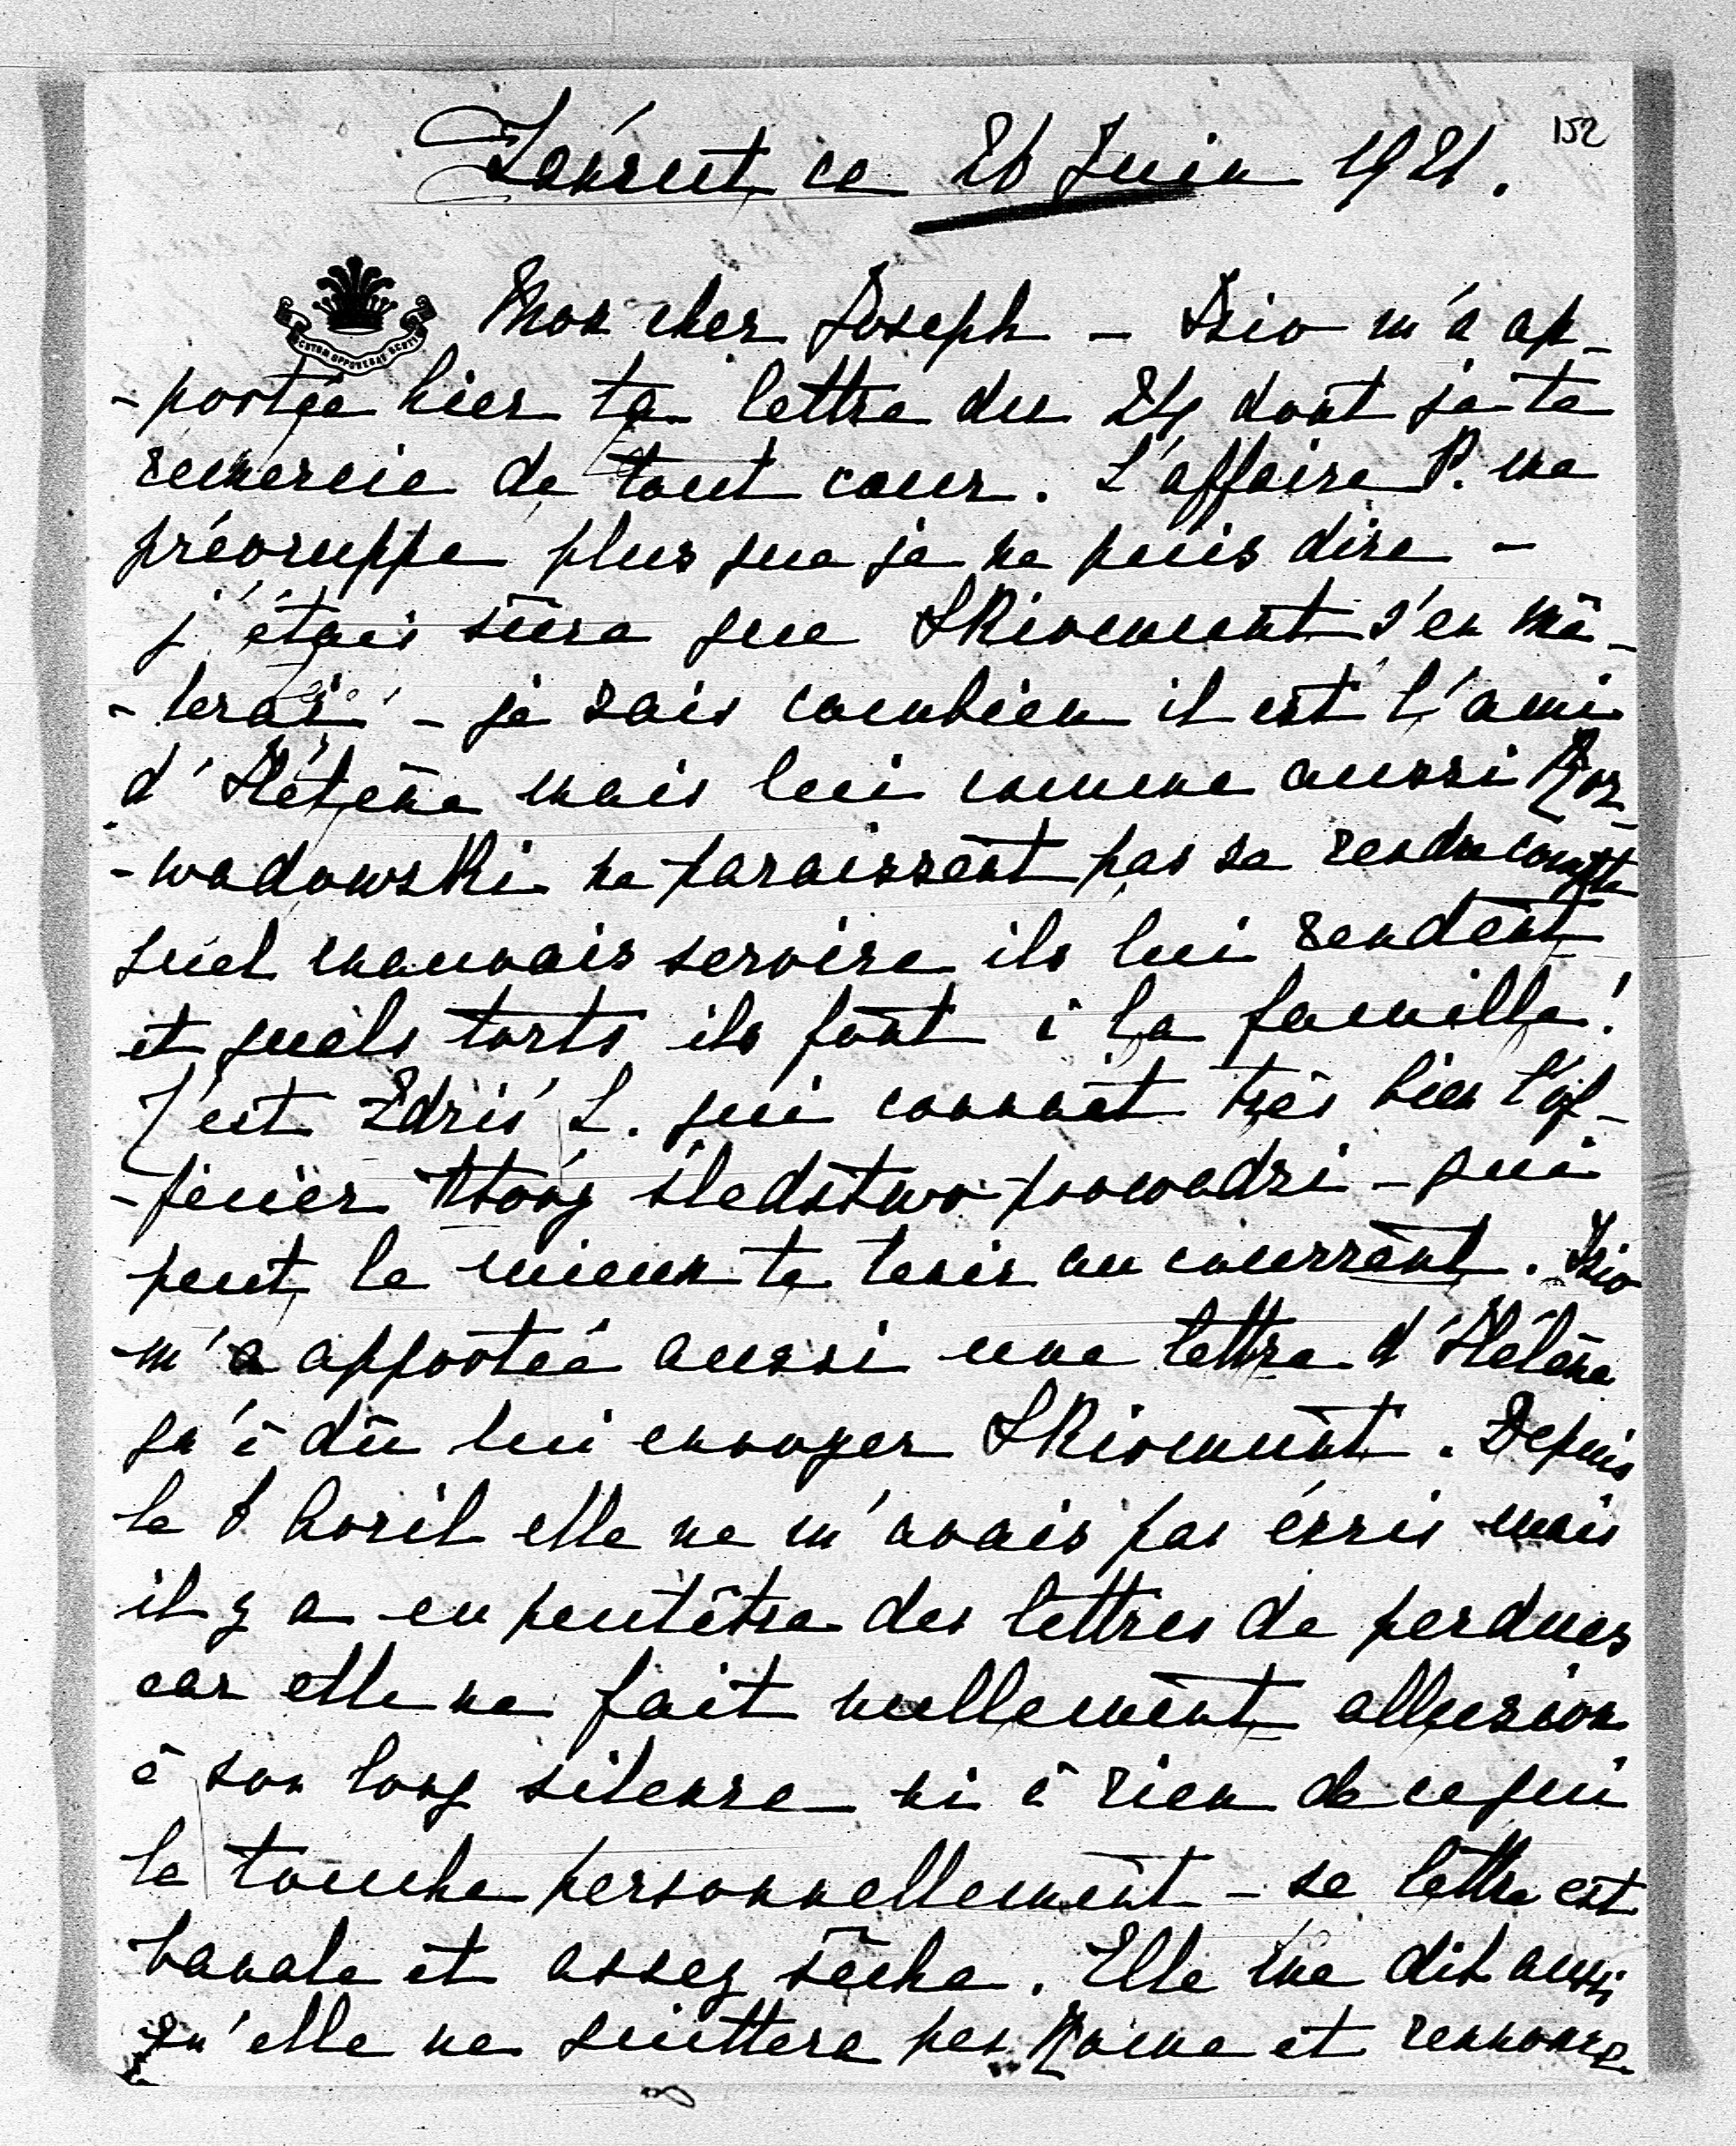 152
Łańcut ce 26 Juin 1921.
SCUTUM OPPONEBAT SCUTIS
Mon cher Joseph – Izio m'a ap-
-portée hier ta lettre du 24 dont je te
remercie de tout cœur. L'affaire P. me
préocuppe plus que je ne puis dire –
j'étais sûre que Skirmunt s'en mê-
-lerai – je sais combien il est l'ami
d'Hélène mais lui comme aussi Roz-
-wadowski ne paraissent pas se rendre compte
quel mauvais service ils lui rendent
et quels torts ils font à la famille!
C'est Zdziś L. qui connaît très bien l'of-
-ficier który śledstwo prowadzi – qui
peut le mieux te tenir au courrant. Izio
m'a apportée aussi une lettre d'Hélène
qu'à dû lui envoyer Skirmunt. Depuis
le 8 Avril elle ne m'avais pas écris mais
il y a eu peutêtre des lettres de perdues
car elle ne fait nullement allusion
à son long silence ni à rien de ce qui
la touche personnellement – sa lettre est
banale et assez sèche. Elle me dit aussi
qu'elle ne quittera pas Rome et renonce